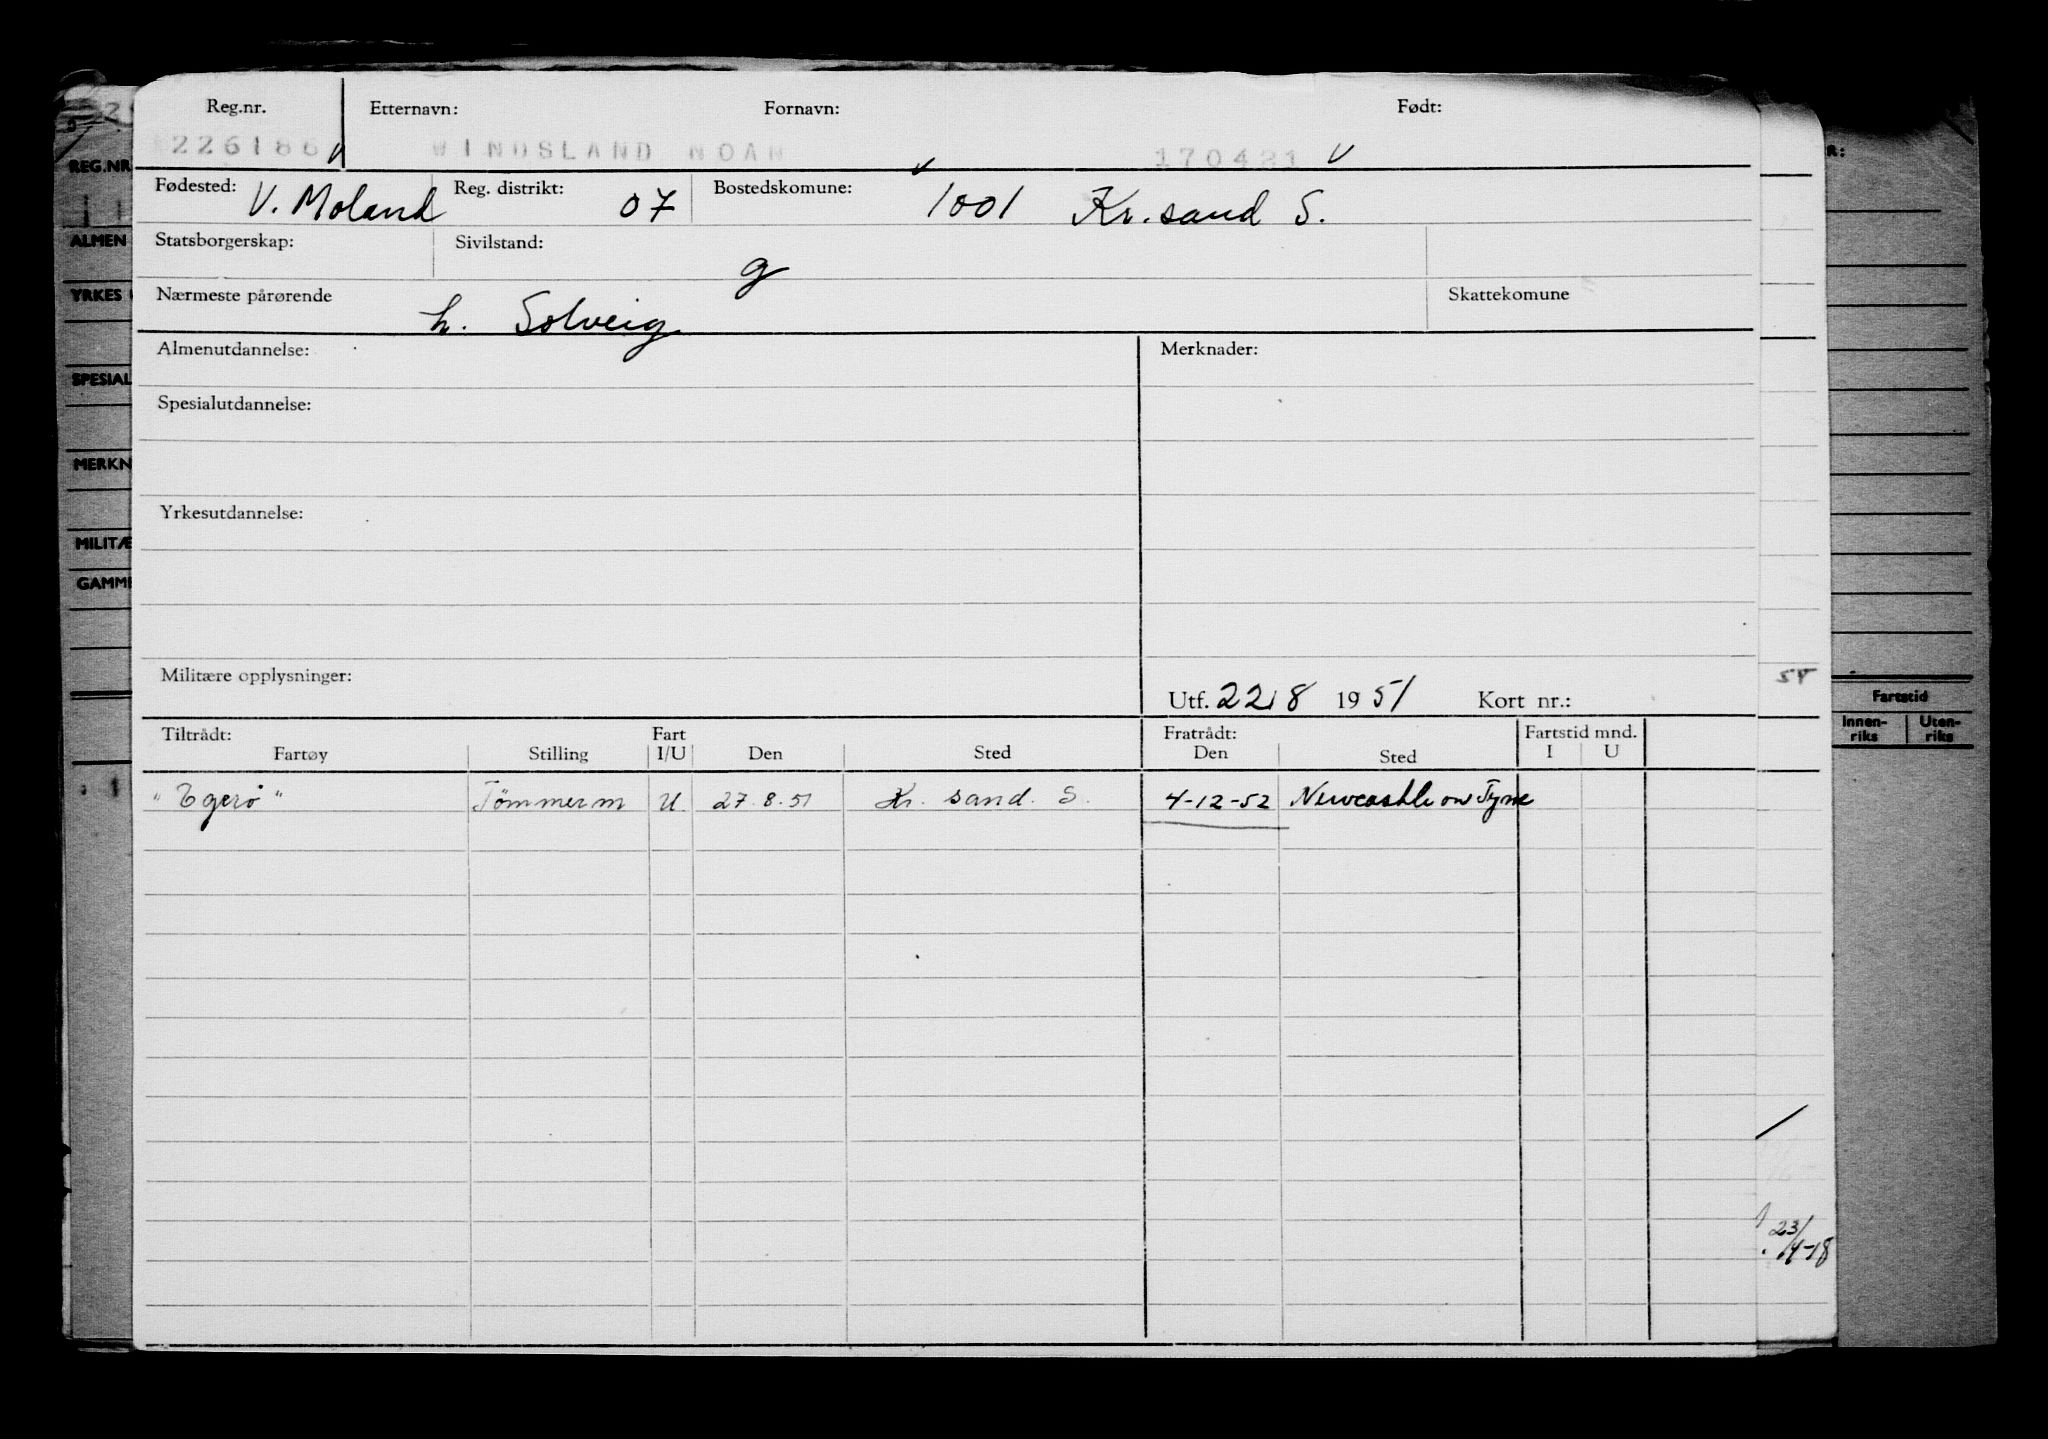 Reg.nr. Etternavn: Fornavn: Født:
226186 WINDSLAND NOAH 170421
Fødested: V. Moland Reg. distrikt: 07 Bostedskomune: 1001 Kr.sand S.
Statsborgerskap: Sivilstand: g
Nærmeste pårørende h. Solveig Skattekomune
Almenutdannelse: Merknader:
Spesialutdannelse:
Yrkesutdannelse:
Militære opplysninger:
Utf. 22/8 1951 Kort nr.:
Tiltrådt: Fart Fratrådt: Fartstid mnd.
Fartøy Stilling I/U Den Sted Den Sted I U
"Egerö" Tömmerm U 27.8.51 Kr. sand. S. 4-12-52 Newcastle on Tyne
REG.NR
ALMEN
YRKES
SPESIAL
MERKN
MILITÆ
GAMME
R:
Fartstid
Innen-riks Uten-riks
23/4-18